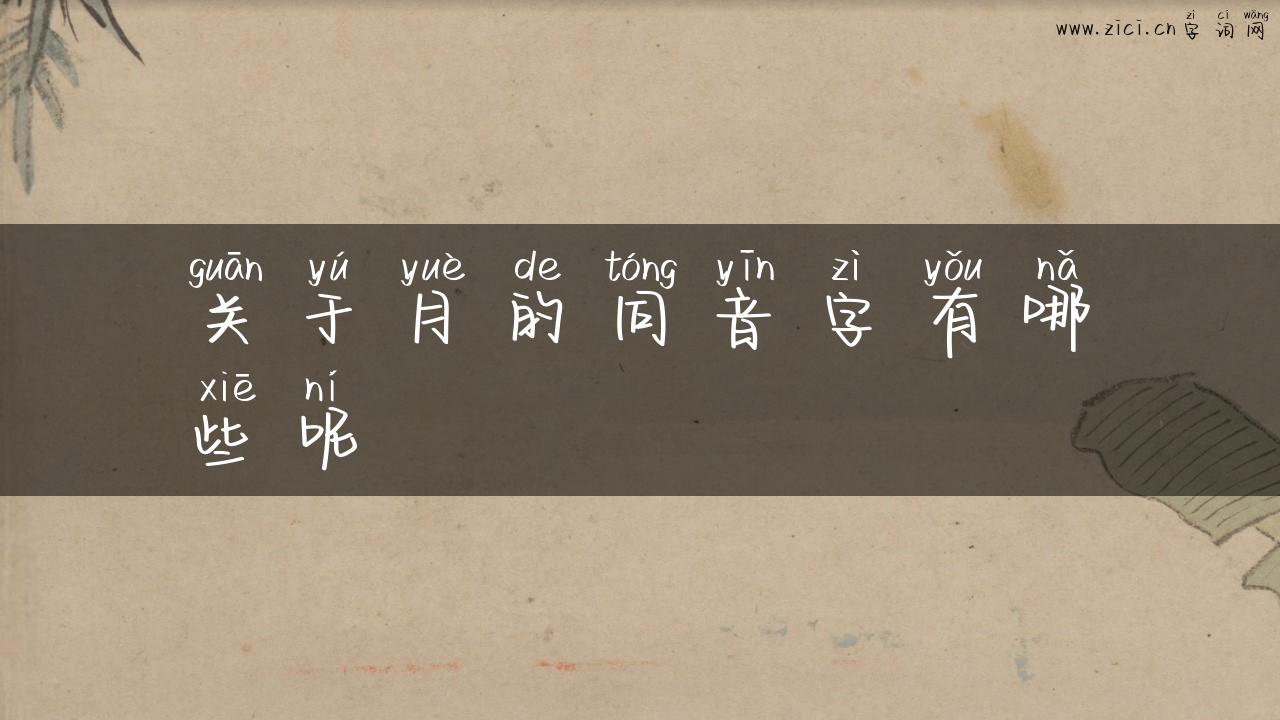 zì cí wǎng
www.zici.cn 字 词 网
guān yú yuè de tóng yīn zì yǒu nǎ
关 于 月 的 同 音 字 有 哪
xiē ní
些 呢